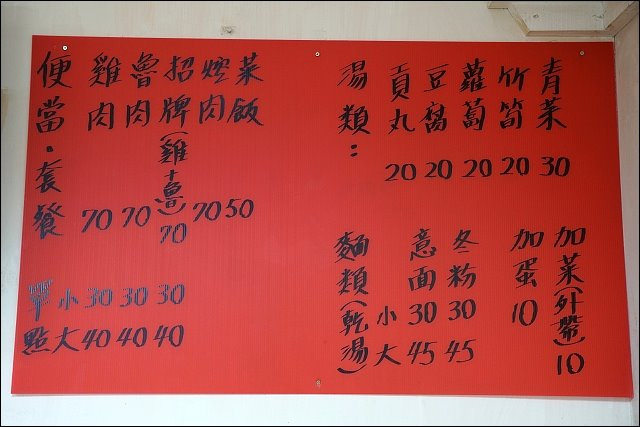 便當·套餐
雞肉 70
魯肉 70
招牌(雞+魯) 70
焢肉 70
菜飯 50
單點
小 30 30 30
大 40 40 40
湯類:
貢丸 20
豆腐 20
蘿蔔 20
竹筍 20
青菜 30
麵類(乾湯)
小 大
意面 30 45
冬粉 30 45
加蛋 10
加菜(外帶) 10